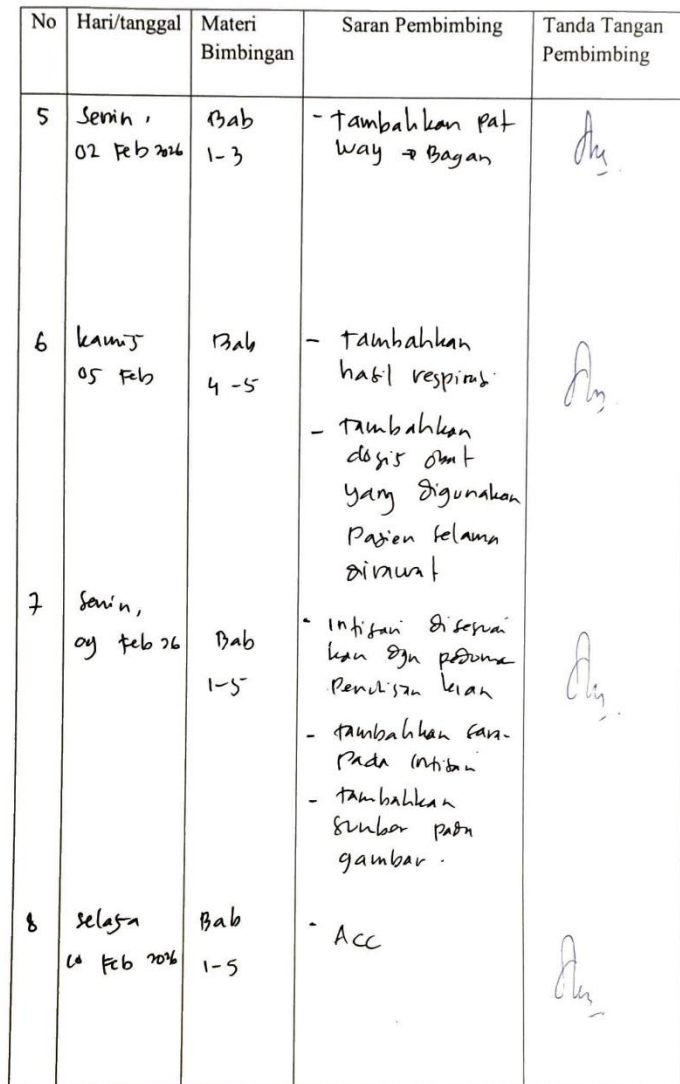 No Hari/tanggal Materi Bimbingan Saran Pembimbing Tanda Tangan Pembimbing
5 Senin, Bab - Tambahkan pat
02 Feb 2026 1-3 way → Bagan
6 kamis Bab - Tambahkan
05 Feb 4-5 hasil respirasi
- Tambahkan
dosis obat
yang digunakan
Pasien selama
dirawat
7 Senin,
09 Feb 26 Bab - Intisari disesuai
1-5 kan dgn pedoman
Penulisan kian
- tambahkan saran
Pada intisari
- tambahkan
sumber pada
gambar.
8 selasa Bab - Acc
10 Feb 2026 1-5